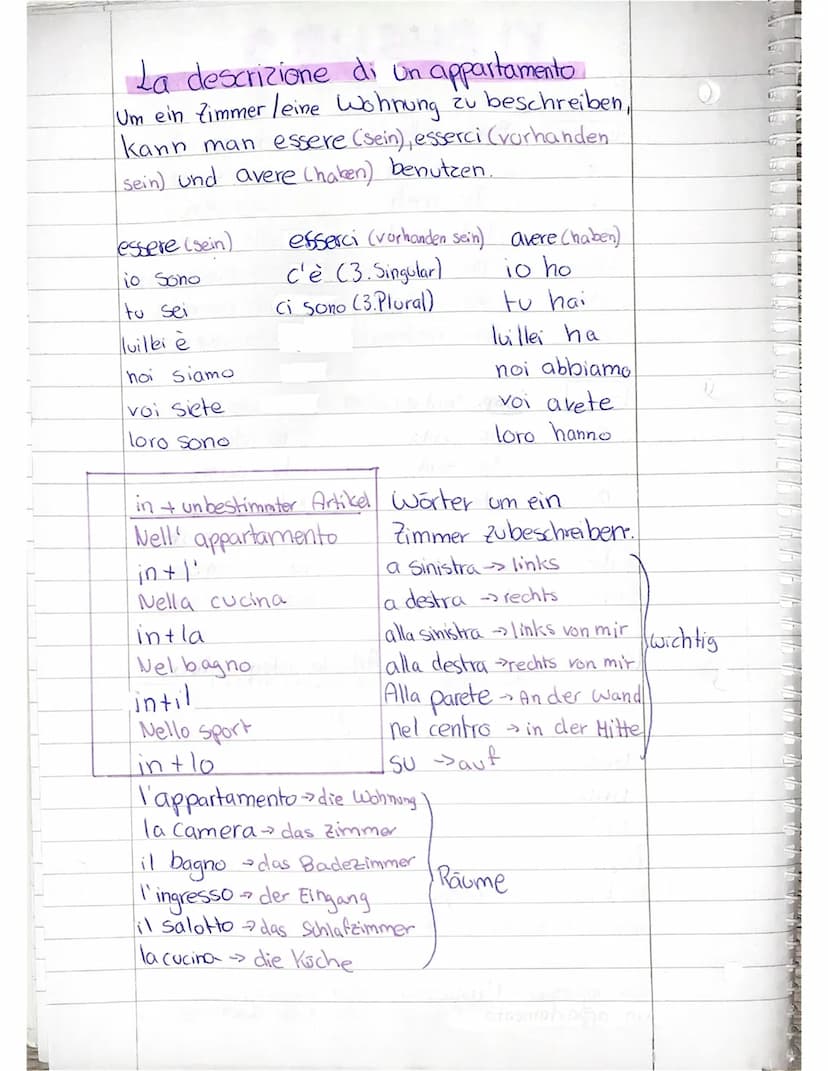 La descrizione di un appartamento
Um ein Zimmer/eine Wohnung zu beschreiben,
kann man essere (sein), esserci (vorhanden
sein) und avere (haben) benutzen.
essere (sein) esserci (vorhanden sein) avere (haben)
io sono c'è (3. Singular) io ho
tu sei ci sono (3. Plural) tu hai
lui/lei è lui/lei ha
noi siamo noi abbiamo
voi siete voi avete
loro sono loro hanno
in + unbestimmter Artikel
Nell' appartamento
in + l'
Nella cucina
in + la
Nel bagno
in + il
Nello sport
in + lo
Wörter um ein
Zimmer zubeschreiben.
a sinistra → links
a destra → rechts
alla sinistra → links von mir
alla destra → rechts von mir
Alla parete → An der Wand
nel centro → in der Mitte
su → auf
wichtig
l'appartamento → die Wohnung
la camera → das Zimmer
il bagno → das Badezimmer
l'ingresso → der Eingang
il salotto → das Schlafzimmer
la cucina → die Küche
Räume